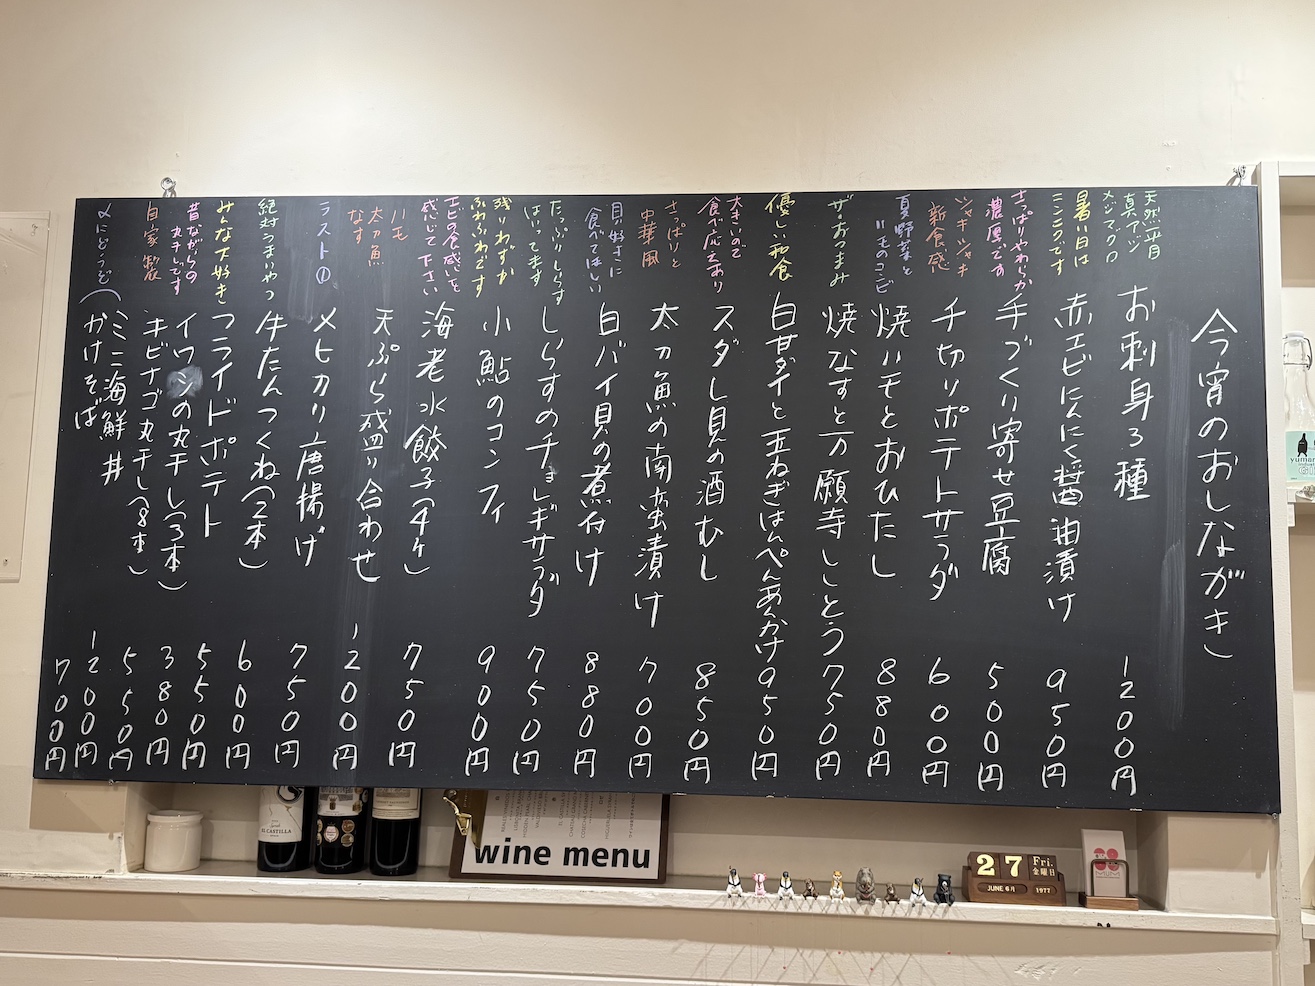 今宵のおしながき)
天然平目
真アジ
メジマグロ
お刺身3種
1200円
暑い日は
ニンニクです
赤エビにんにく醤油漬け
950円
さっぱりやわらか
濃厚です
手づくり寄せ豆腐
500円
シャキシャキ
新食感
千切りポテトサラダ
600円
夏野菜と
ハモのコンビ
焼ハモとおひたし
880円
ザ・おつまみ
焼なすと万願寺ししとう
750円
優しい和食
白甘ダイと玉ねぎはんぺんあんかけ
950円
大きいので
食べ応えあり
スダレ貝の酒むし
850円
さっぱりと
中華風
太刀魚の南蛮漬け
700円
貝好きに
食べてほしい
白バイ貝の煮付け
880円
たっぷりしらす
はいってます
しらすのチョレギサラダ
750円
残りわずか
ふわふわです
小鮎のコンフィ
900円
エビの食感を
感じて下さい
海老水餃子(4ケ)
750円
ハモ
太刀魚
なす
天ぷら盛り合わせ
1200円
ラスト①
メヒカリ唐揚げ
750円
絶対うまいやつ
牛たんつくね(2本)
600円
みんな大好き
フライドポテト
550円
昔ながらの
丸干しです
イワシの丸干し(3本)
380円
自家製
キビナゴ丸干し(8本)
550円
〆にどうぞ(
ミニ海鮮丼
1200円
かけそば
700円
EL CASTILLA
wine menu
27
Fri.
金曜日
JUNE 6月
1977